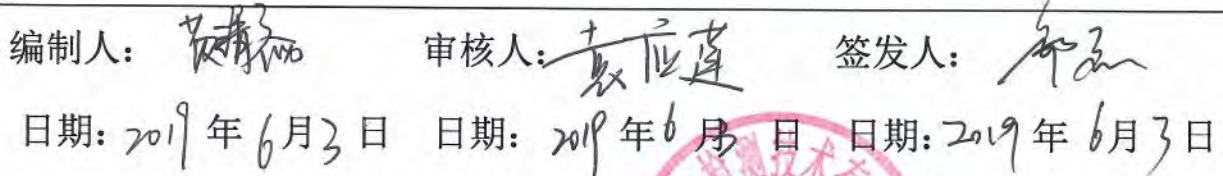 编制人： 审核人：袁应莲 签发人：
日期：2019年6月3日 日期：2019年6月3日 日期：2019年6月3日
检测技术